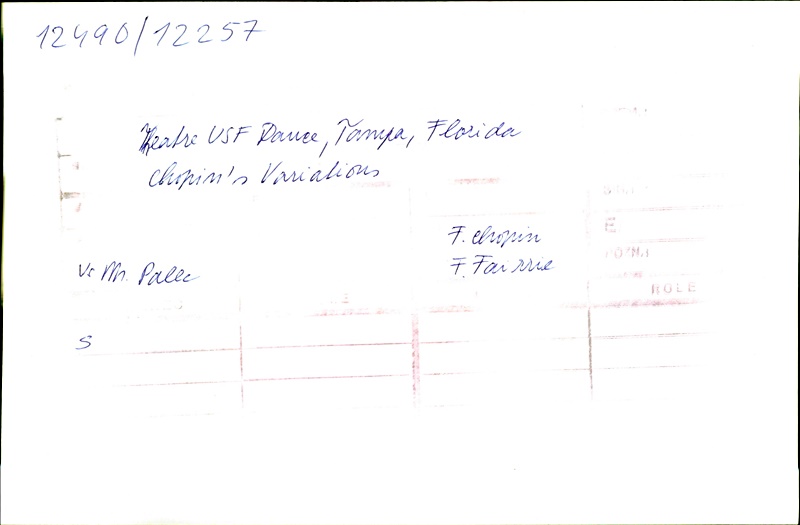 12490/12257
Theatre USF Dance, Tampa, Florida
Chopin's Variations
F. Chopin
Vs Mr. Palec
F. Fairrie
E
ROLE
S